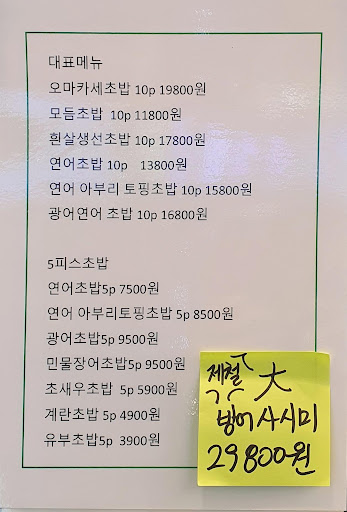 대표메뉴
오마카세초밥 10p 19800원
모듬초밥 10p 11800원
흰살생선초밥 10p 17800원
연어초밥 10p 13800원
연어 아부리 토핑초밥 10p 15800원
광어연어 초밥 10p 16800원
5피스초밥
연어초밥5p 7500원
연어 아부리토핑초밥 5p 8500원
광어초밥5p 9500원
민물장어초밥5p 9500원
초새우초밥 5p 5900원
계란초밥 5p 4900원
유부초밥5p 3900원
제철 大
방어 사시미
29800원